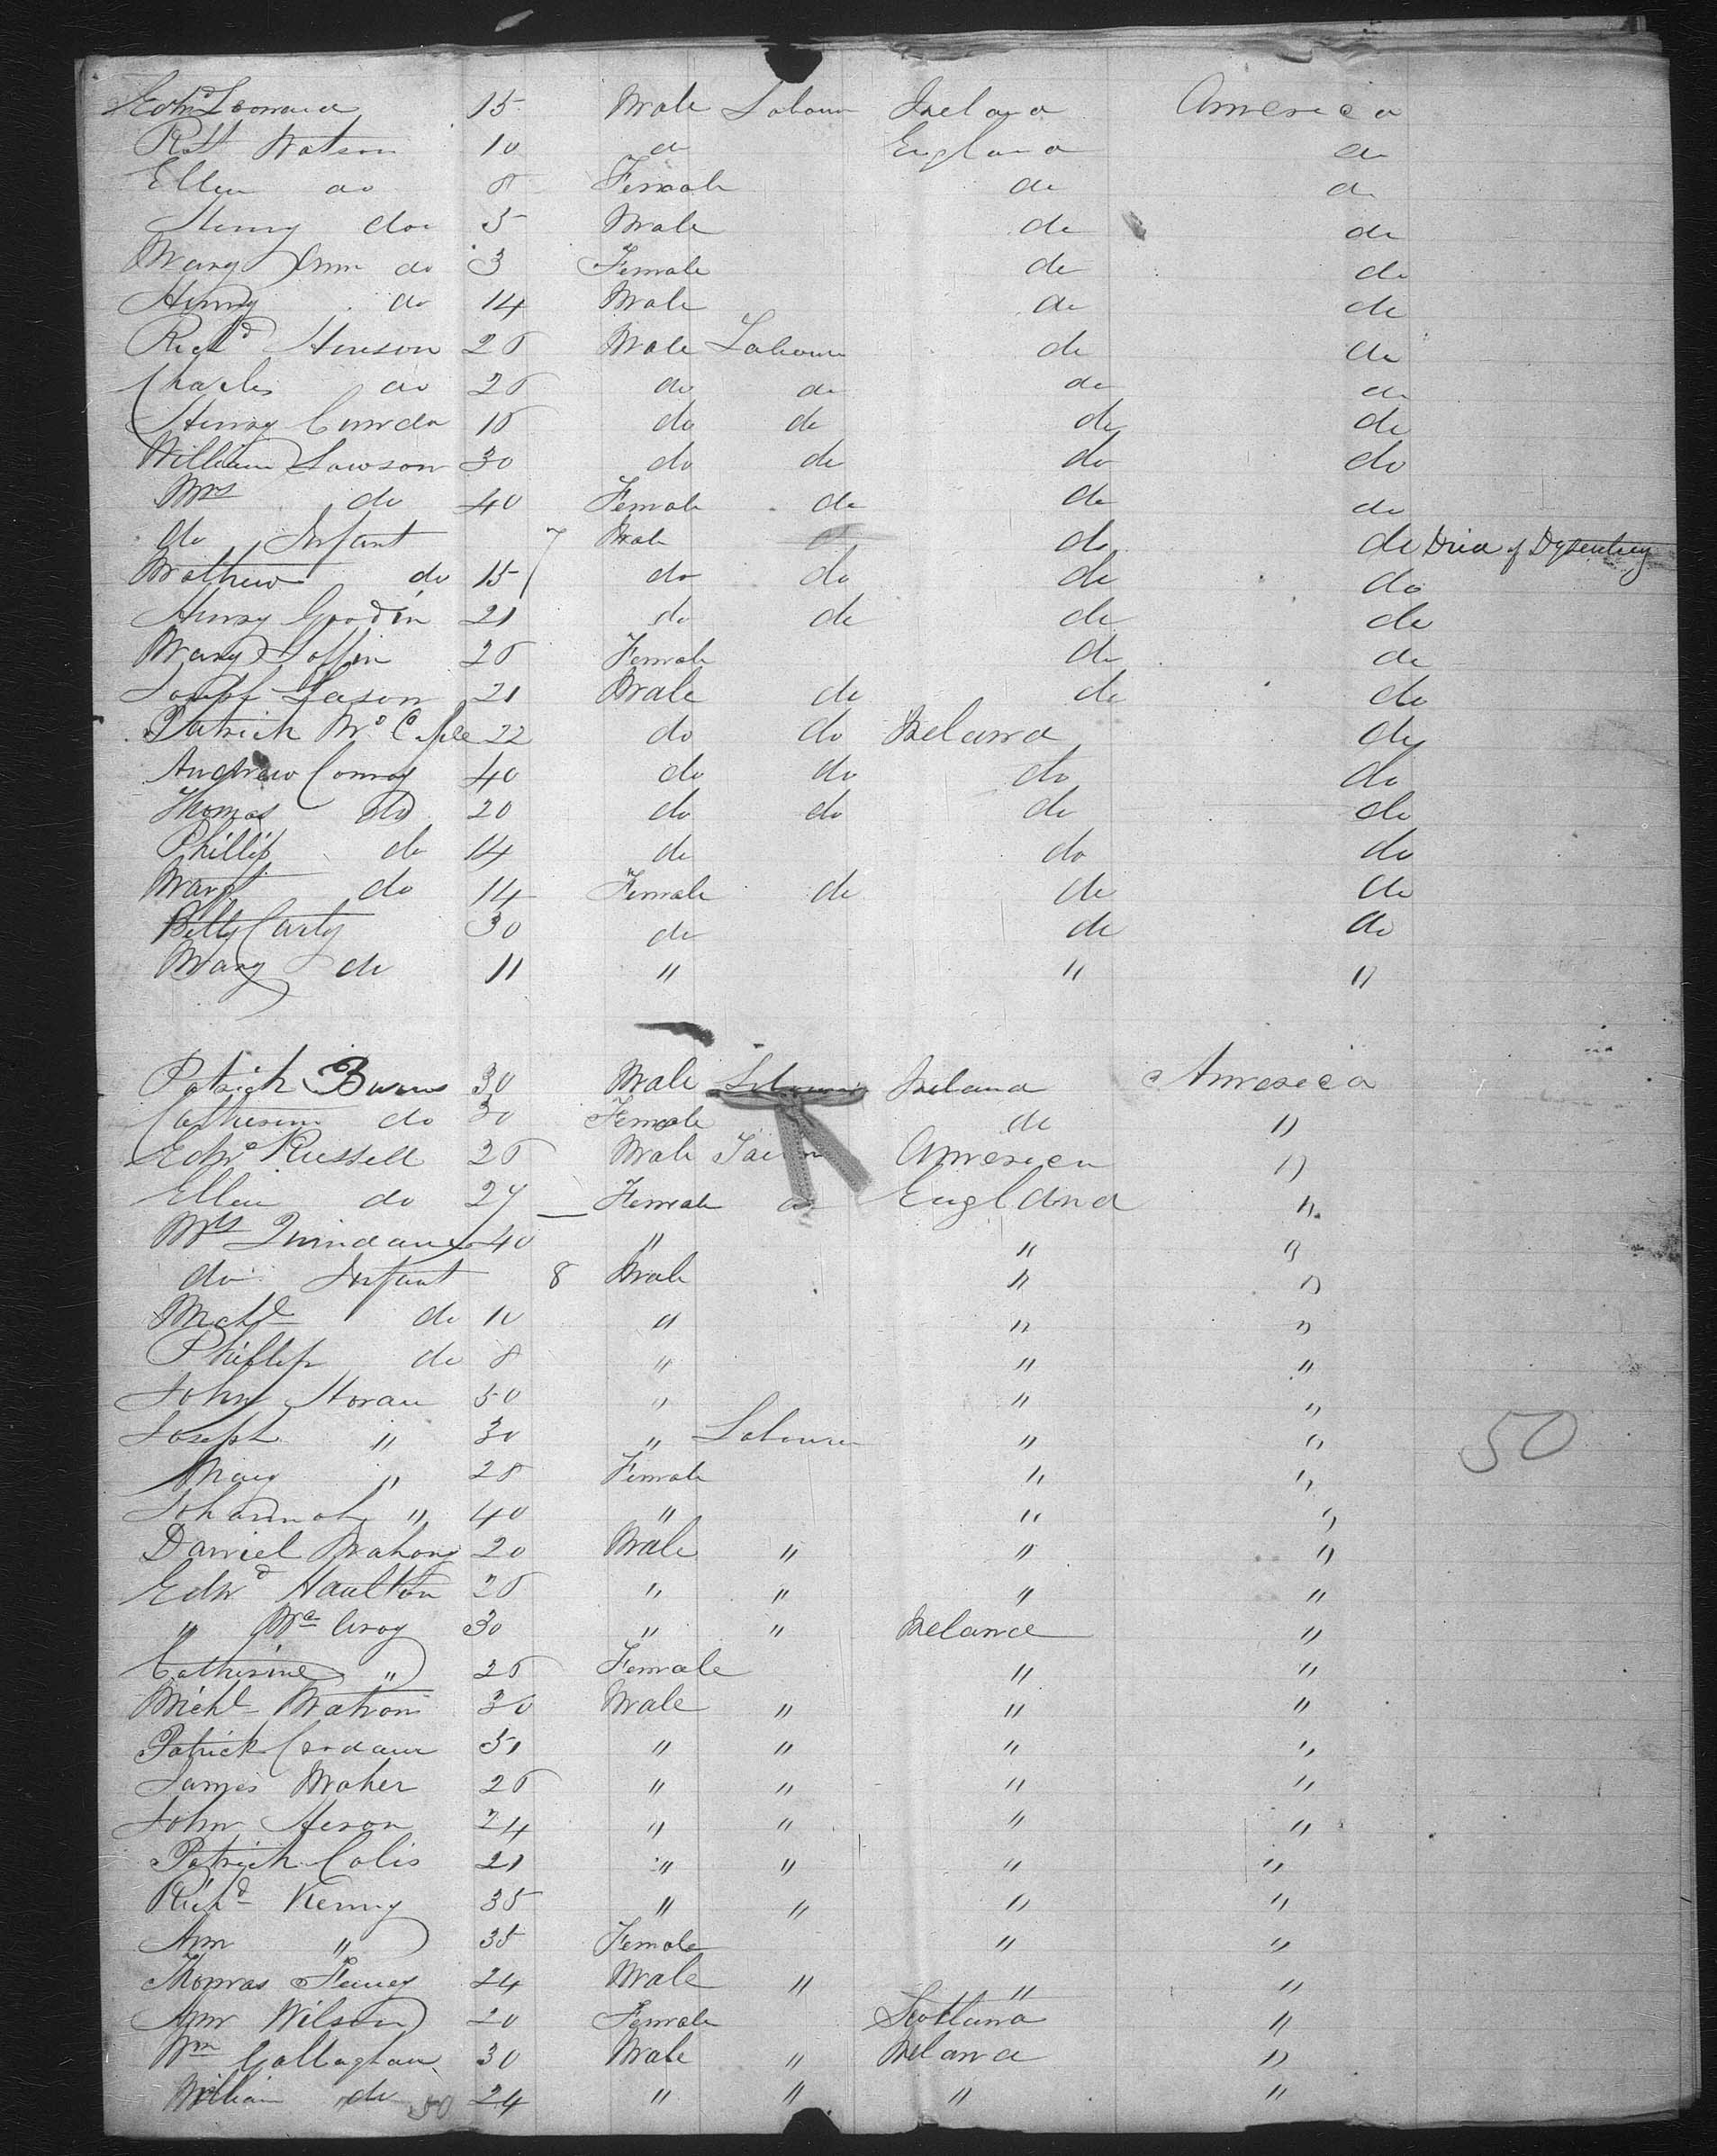 Edwd Leonard 15 Male Labour Ireland America
Robt Watson 10 do England do
Ellen do 8 Female do do
Henry do 5 Male do do
Mary Ann do 3 Female do do
Henry do 14 Male do do
Richd Hinson 26 Male Labour do do
Charles do 26 do do do do
Henry 18 do do do do
William Lawson 30 do do do do
Mrs do 40 Female do do do
do Infant 7 Male do do Died of Dysentery
Mathew do 15 do do do do
Henry Goodin 21 do do do do
Mary 26 Female do do
Joseph 21 Male do do do
Patrick 22 do do Ireland do
Andrew Conroy 40 do do do do
Thomas do 20 do do do do
Phillip do 14 do do do
Margt do 14 Female do do do
Betty Carty 30 do do do
Mary do 11 " " "
Patrick Burns 30 Male Labour Ireland America
Catherine do 30 Female do "
Edwd Russell 26 Male America "
Ellen do 27 Female do England "
Mrs 40 " " "
do Infant 8 Male " "
Michl do 10 " " "
Phillip do 8 " " "
John Horan 50 " " "
Joseph " 30 " Labourer " "
Mary " 28 Female " "
Johannah " 40 " " "
Daniel Mahony 20 Male " " "
50
Edwd Haulton 26 " " " "
" McCroy 30 " " Ireland "
Catherine " 26 Female " "
Michl Mahon 30 Male " " "
Patrick 51 " " " "
James Maher 26 " " " "
John Heron 24 " " " "
Patrick Colis 21 " " " "
Richd Kenny 35 " " " "
Ann " 35 Female " "
Thomas 24 Male " " "
Ann Wilson 20 Female Scotland "
Wm Gallaghan 30 Male " Ireland "
William do 50 24 " " " "